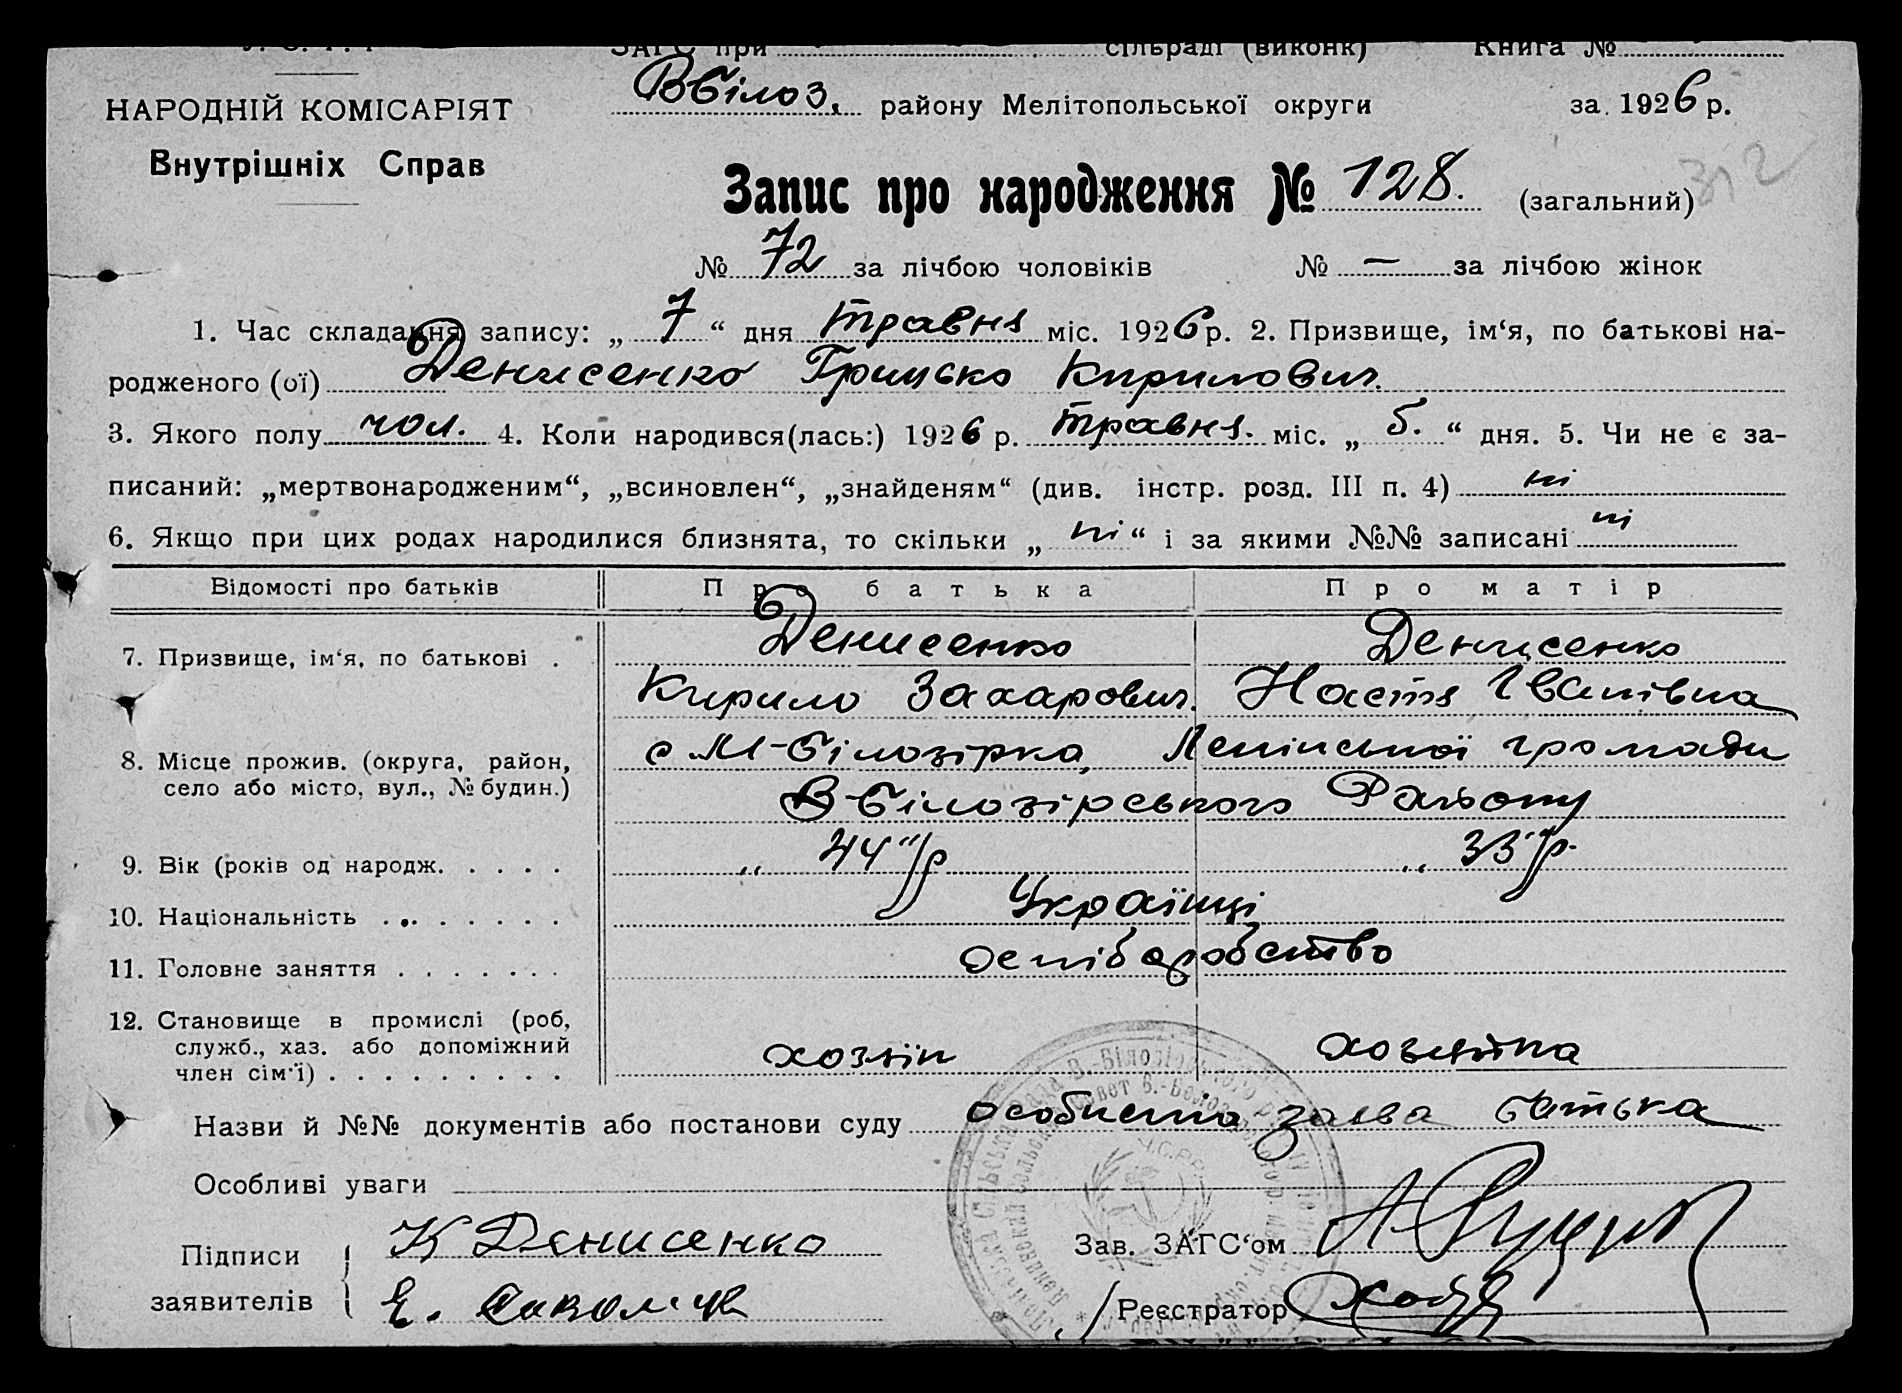 ЗАГС при сільраді (виконк) Книга №
В Білоз. району Мелітопольської округи за 1926 р.
НАРОДНІЙ КОМІСАРІЯТ
Внутрішніх Справ
Запис про народження № 128. (загальний) 312
№ 72 за лічбою чоловіків № — за лічбою жінок
1. Час складання запису: „ 7 “ дня травня міс. 1926 р. 2. Призвище, ім‘я, по батькові на-
родженого (ої) Денисенко Грицько Кирилович.
3. Якого полу чол. 4. Коли народився(лась:) 1926 р. травня. міс. „ 5. “ дня. 5. Чи не є за-
писаний: „мертвонародженим“, „всиновлен“, „знайденям“ (див. інстр. розд. III п. 4) ні
6. Якщо при цих родах народилися близнята, то скільки „ ні “ і за якими №№ записані ні
Відомості про батьків Про батька Про матір
7. Призвище, ім‘я, по батькові . Денисенко Денисенко
Кирило Захарович. Настя Іванівна
8. Місце прожив. (округа, район, село або місто, вул., № будин.) с М-Білозірка, Ленінської громади
В-Білозірського Району
9. Вік (років од народж. . . . . „ 44 “/р „ 33 “/р.
10. Національність . . . . . . . . Українці
11. Головне заняття . . . . . . .
12. Становище в промислі (роб, служб., хаз. або допоміжний член сім'ї) . . . . . . . . . хозяїн хозяйка
Назви й №№ документів або постанови суду особиста заява батька
Особливі уваги
Підписи заявителів К Денисенко
Е.
Зав. ЗАГС‘ом
Реєстратор